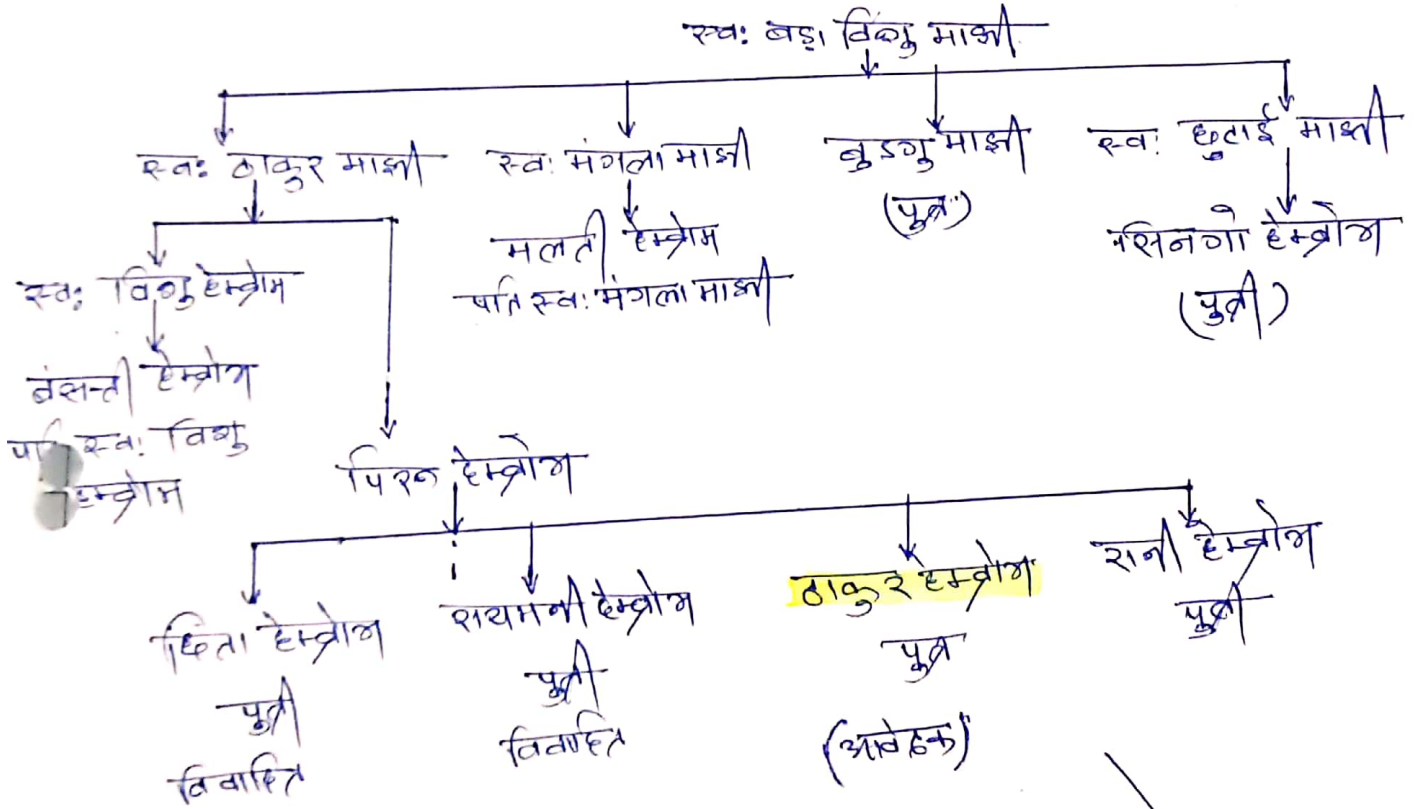 स्व: बड़ा विशु माझी
स्व: ठाकुर माझी
स्व: मंगला माझी
बुडगु माझी
(पुत्र)
स्व: छुटाई माझी
मलती हेम्ब्रोम
पति स्व: मंगला माझी
सिनगो हेम्ब्रोम
(पुत्री)
स्व: विशु हेम्ब्रोम
बंसन्ती हेम्ब्रोम
स्व: विशु
हेम्ब्रोम
पिरू हेम्ब्रोम
छिता हेम्ब्रोम
पुत्री
विवाहित
रायमनी हेम्ब्रोम
पुत्री
विवाहित
ठाकुर हेम्ब्रोम
पुत्र
(आवेदक)
रानी हेम्ब्रोम
पुत्री